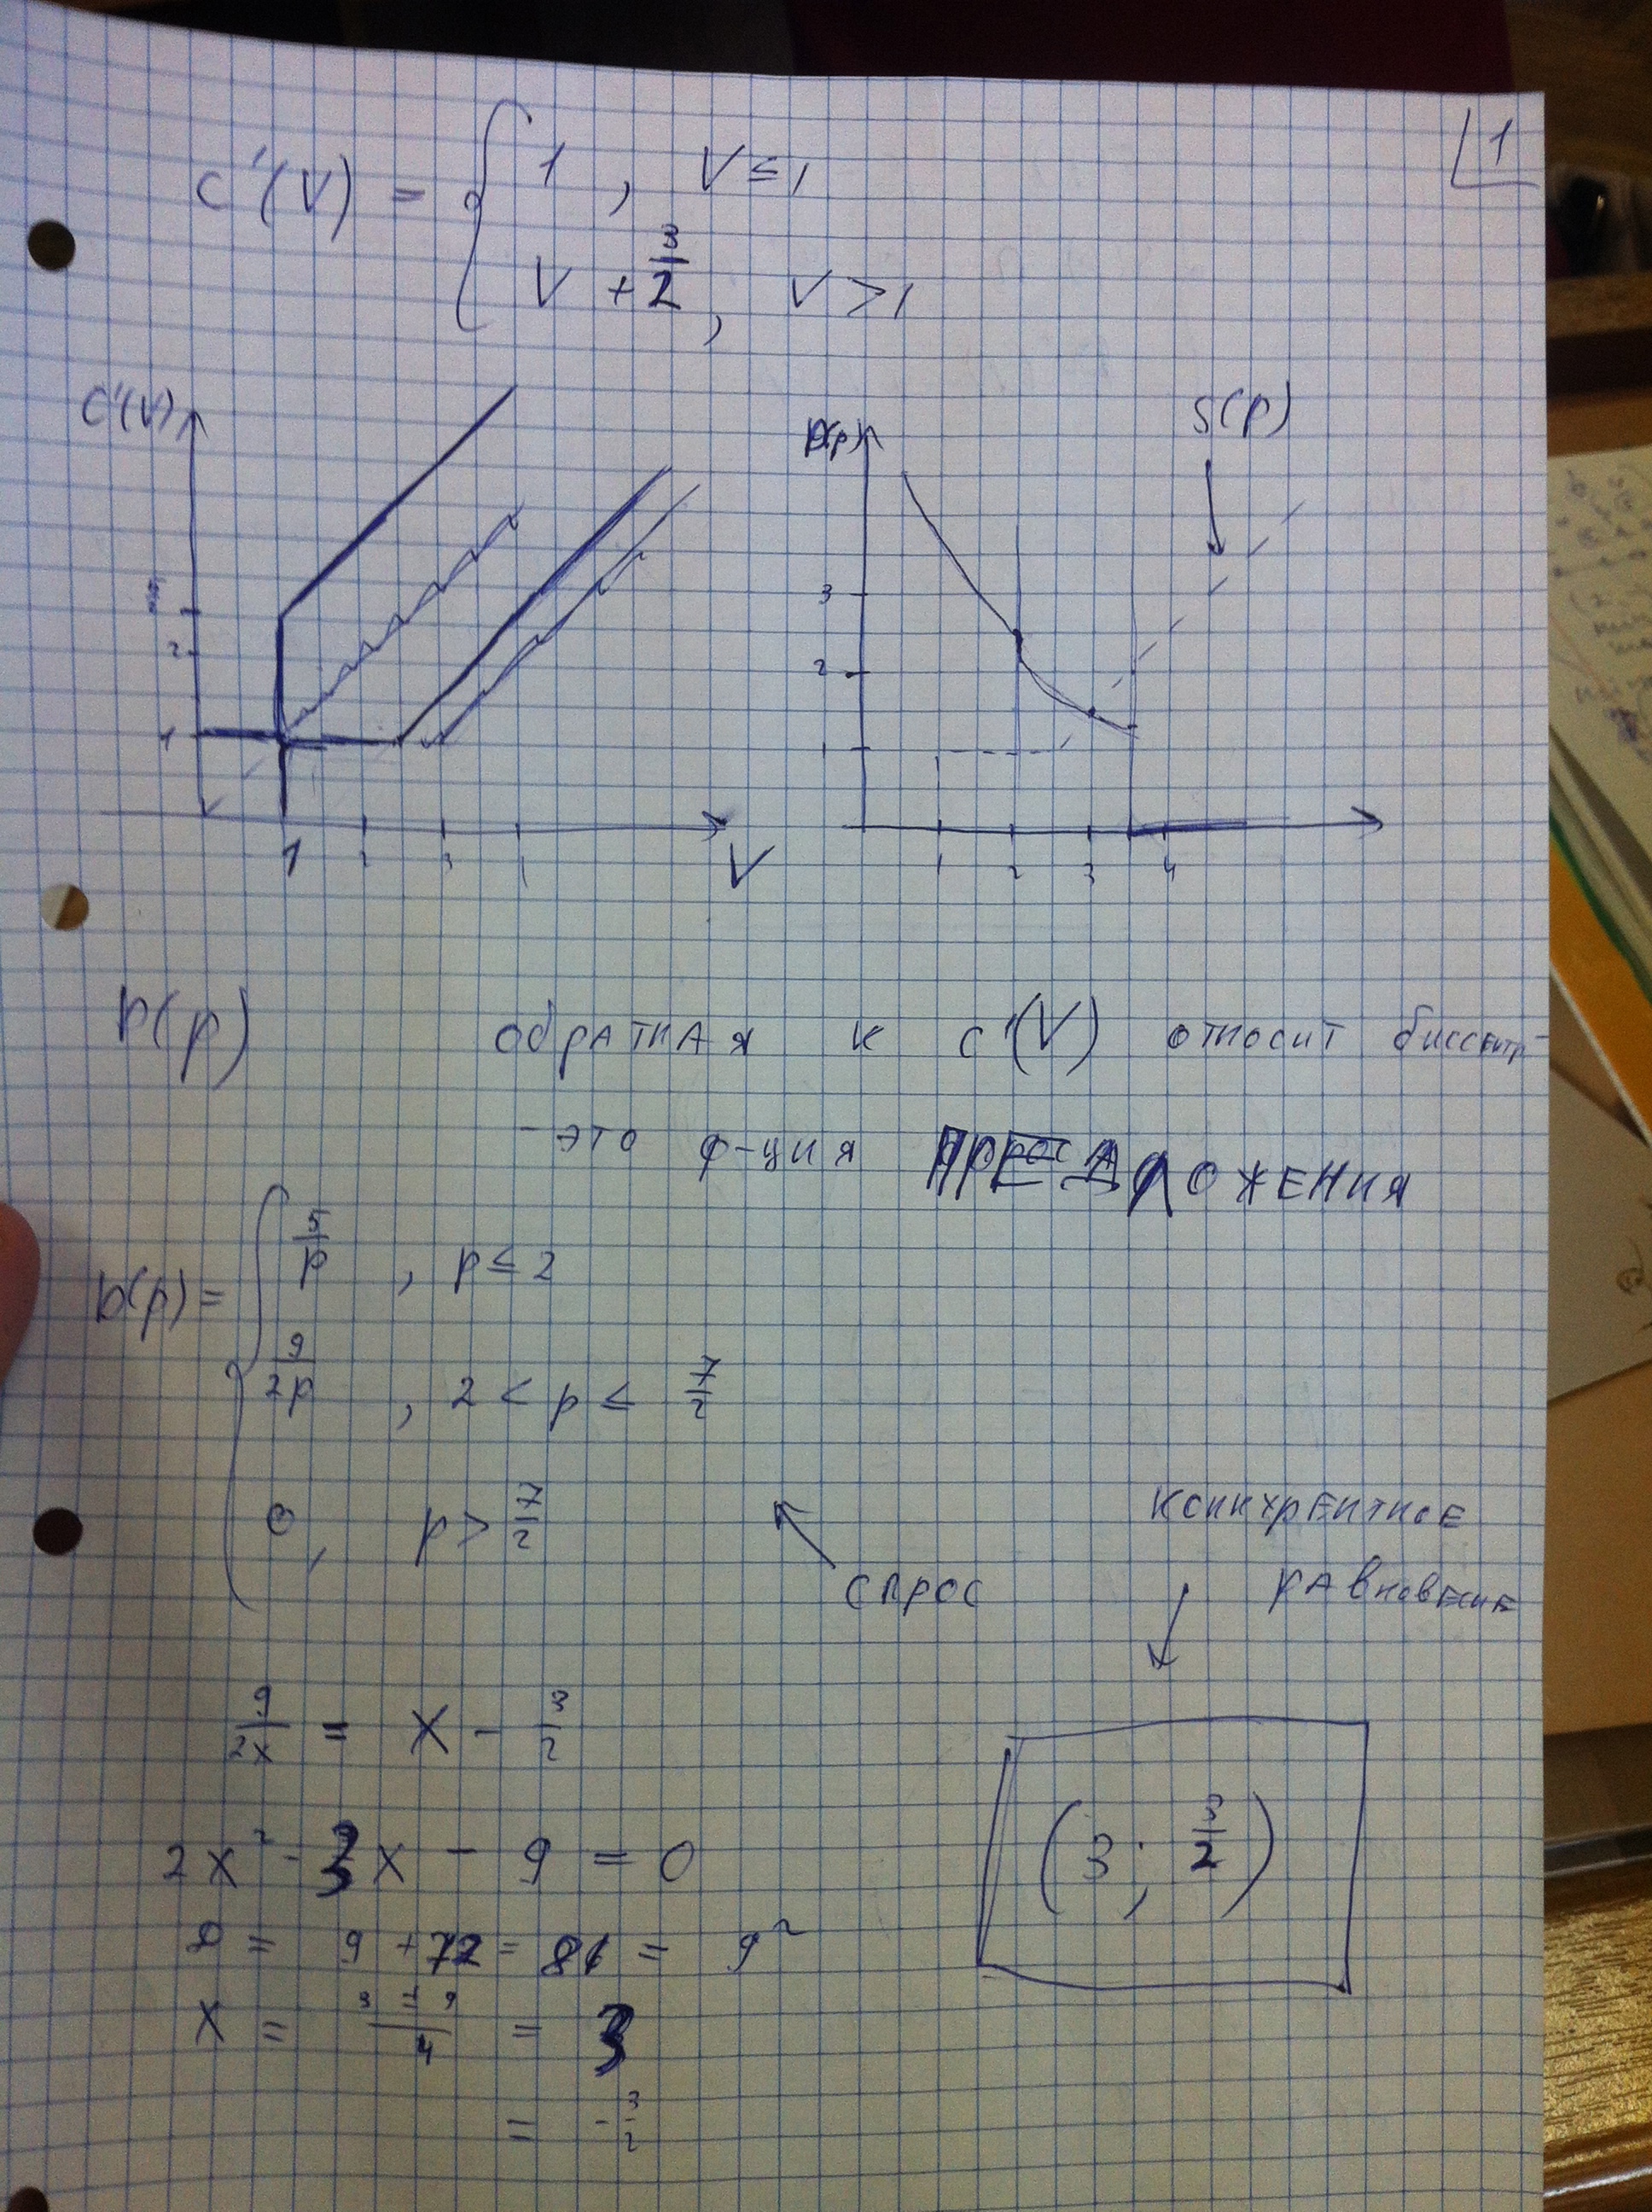 1
C'(V) = { 1 , V ≤ 1
V + 3/2 , V > 1
C'(V)
D(p)
S(p)
2
1
1 2 3
V
3
2
1
1 2 3 4
D(p) обратная к C'(V) относит биссектр-
- это ф-ция ПРЕДЛОЖЕНИЯ
D(p) = { 5/p , p ≤ 2
9/2p , 2 < p ≤ 7/2
0 , p > 7/2
спрос
конкурентное
равновесие
9/2x = x - 3/2
2x² - 3x - 9 = 0
D = 9 + 72 = 81 = 9²
x = 3 ± 9 / 4 = 3
= -3/2
(3; 3/2)